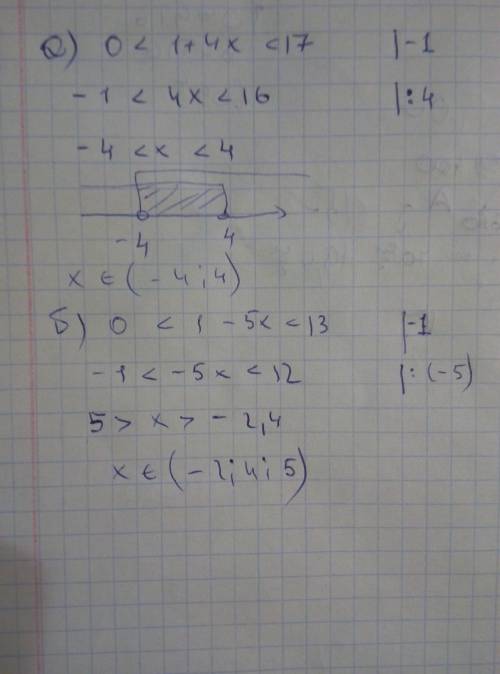 а) 0 < 1+4x < 17 |-1
-1 < 4x < 16 |:4
-4 < x < 4
-4 4
x ∈ (-4; 4)
б) 0 < 1 - 5x < 13 |-1
-1 < -5x < 12 |: (-5)
5 > x > - 2,4
x ∈ (- 2; 4; 5)